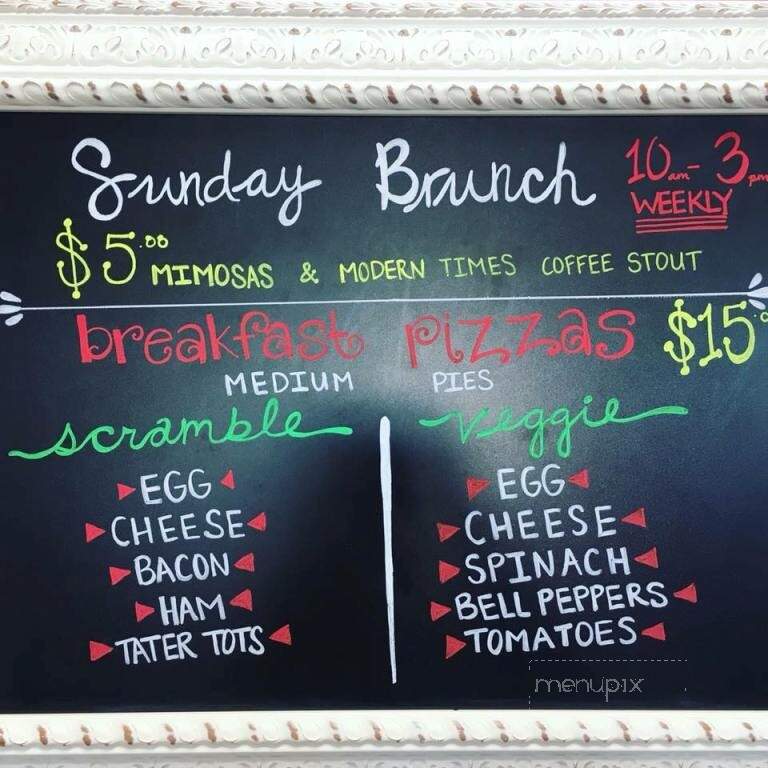 Sunday Brunch 10am-3pm
WEEKLY
$5.00 MIMOSAS & MODERN TIMES COFFEE STOUT
breakfast pizzas $15.0
MEDIUM PIES
scramble
EGG
CHEESE
BACON
HAM
TATER TOTS
veggie
EGG
CHEESE
SPINACH
BELL PEPPERS
TOMATOES
menupix